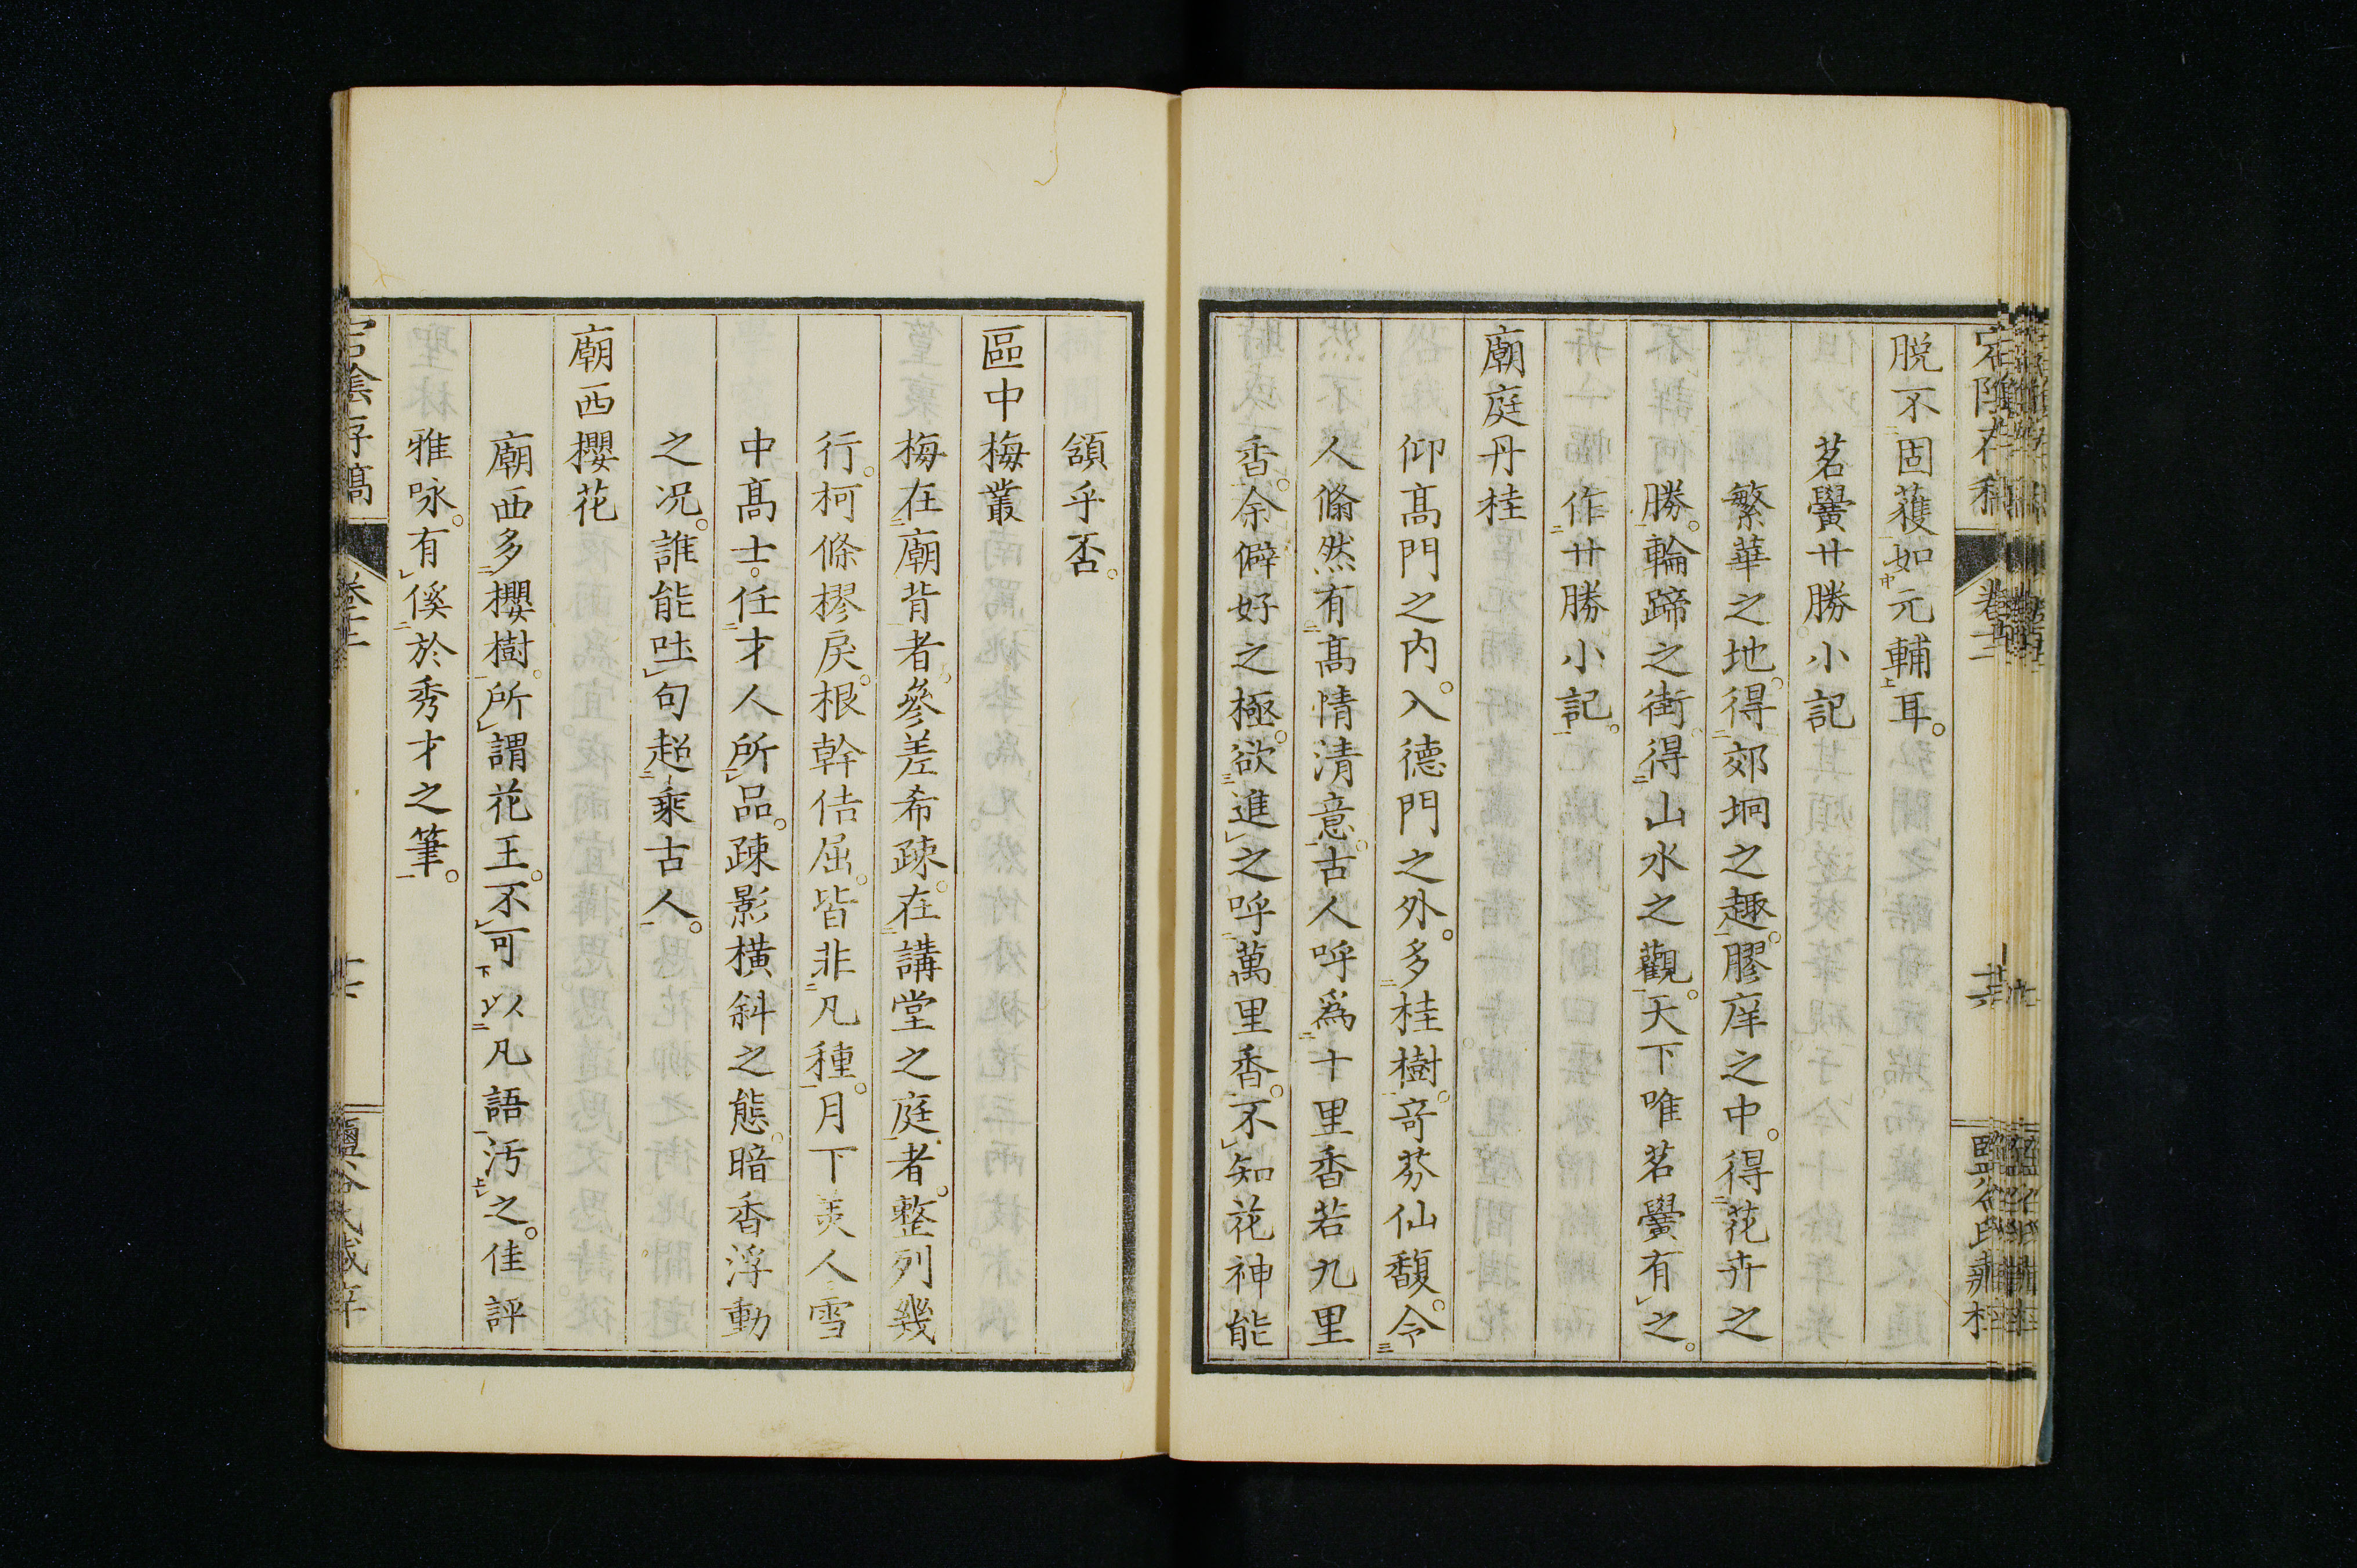 脱不固䕶如元輔耳。
茗黌廿勝小記
繁華之地。得郊坰之趣。膠庠之中。得花卉之
勝。輪蹄之街。得山水之觀。天下唯茗黌有之。
作廿勝小記。
廟庭丹桂
仰髙門之内。入德門之外。多桂樹。竒芬仙馥。令
人翛然有髙情清意。古人呼爲十里香若九里
香。余僻好之極。欲進之呼萬里香。不知花神能
頷乎否。
區中梅叢
梅在廟背者。參差希疎。在講堂之庭者。整列幾
行。柯條樛戾。根幹佶屈。皆非凡種。月下美人雪
中髙士。任才人所品。疎影横斜之態。暗香浮動
之况。誰能吐句超乘古人。
廟西櫻花
廟西多櫻樹。所謂花王。不可以凡語汚之。佳評
雅咏。有傒於秀才之筆。